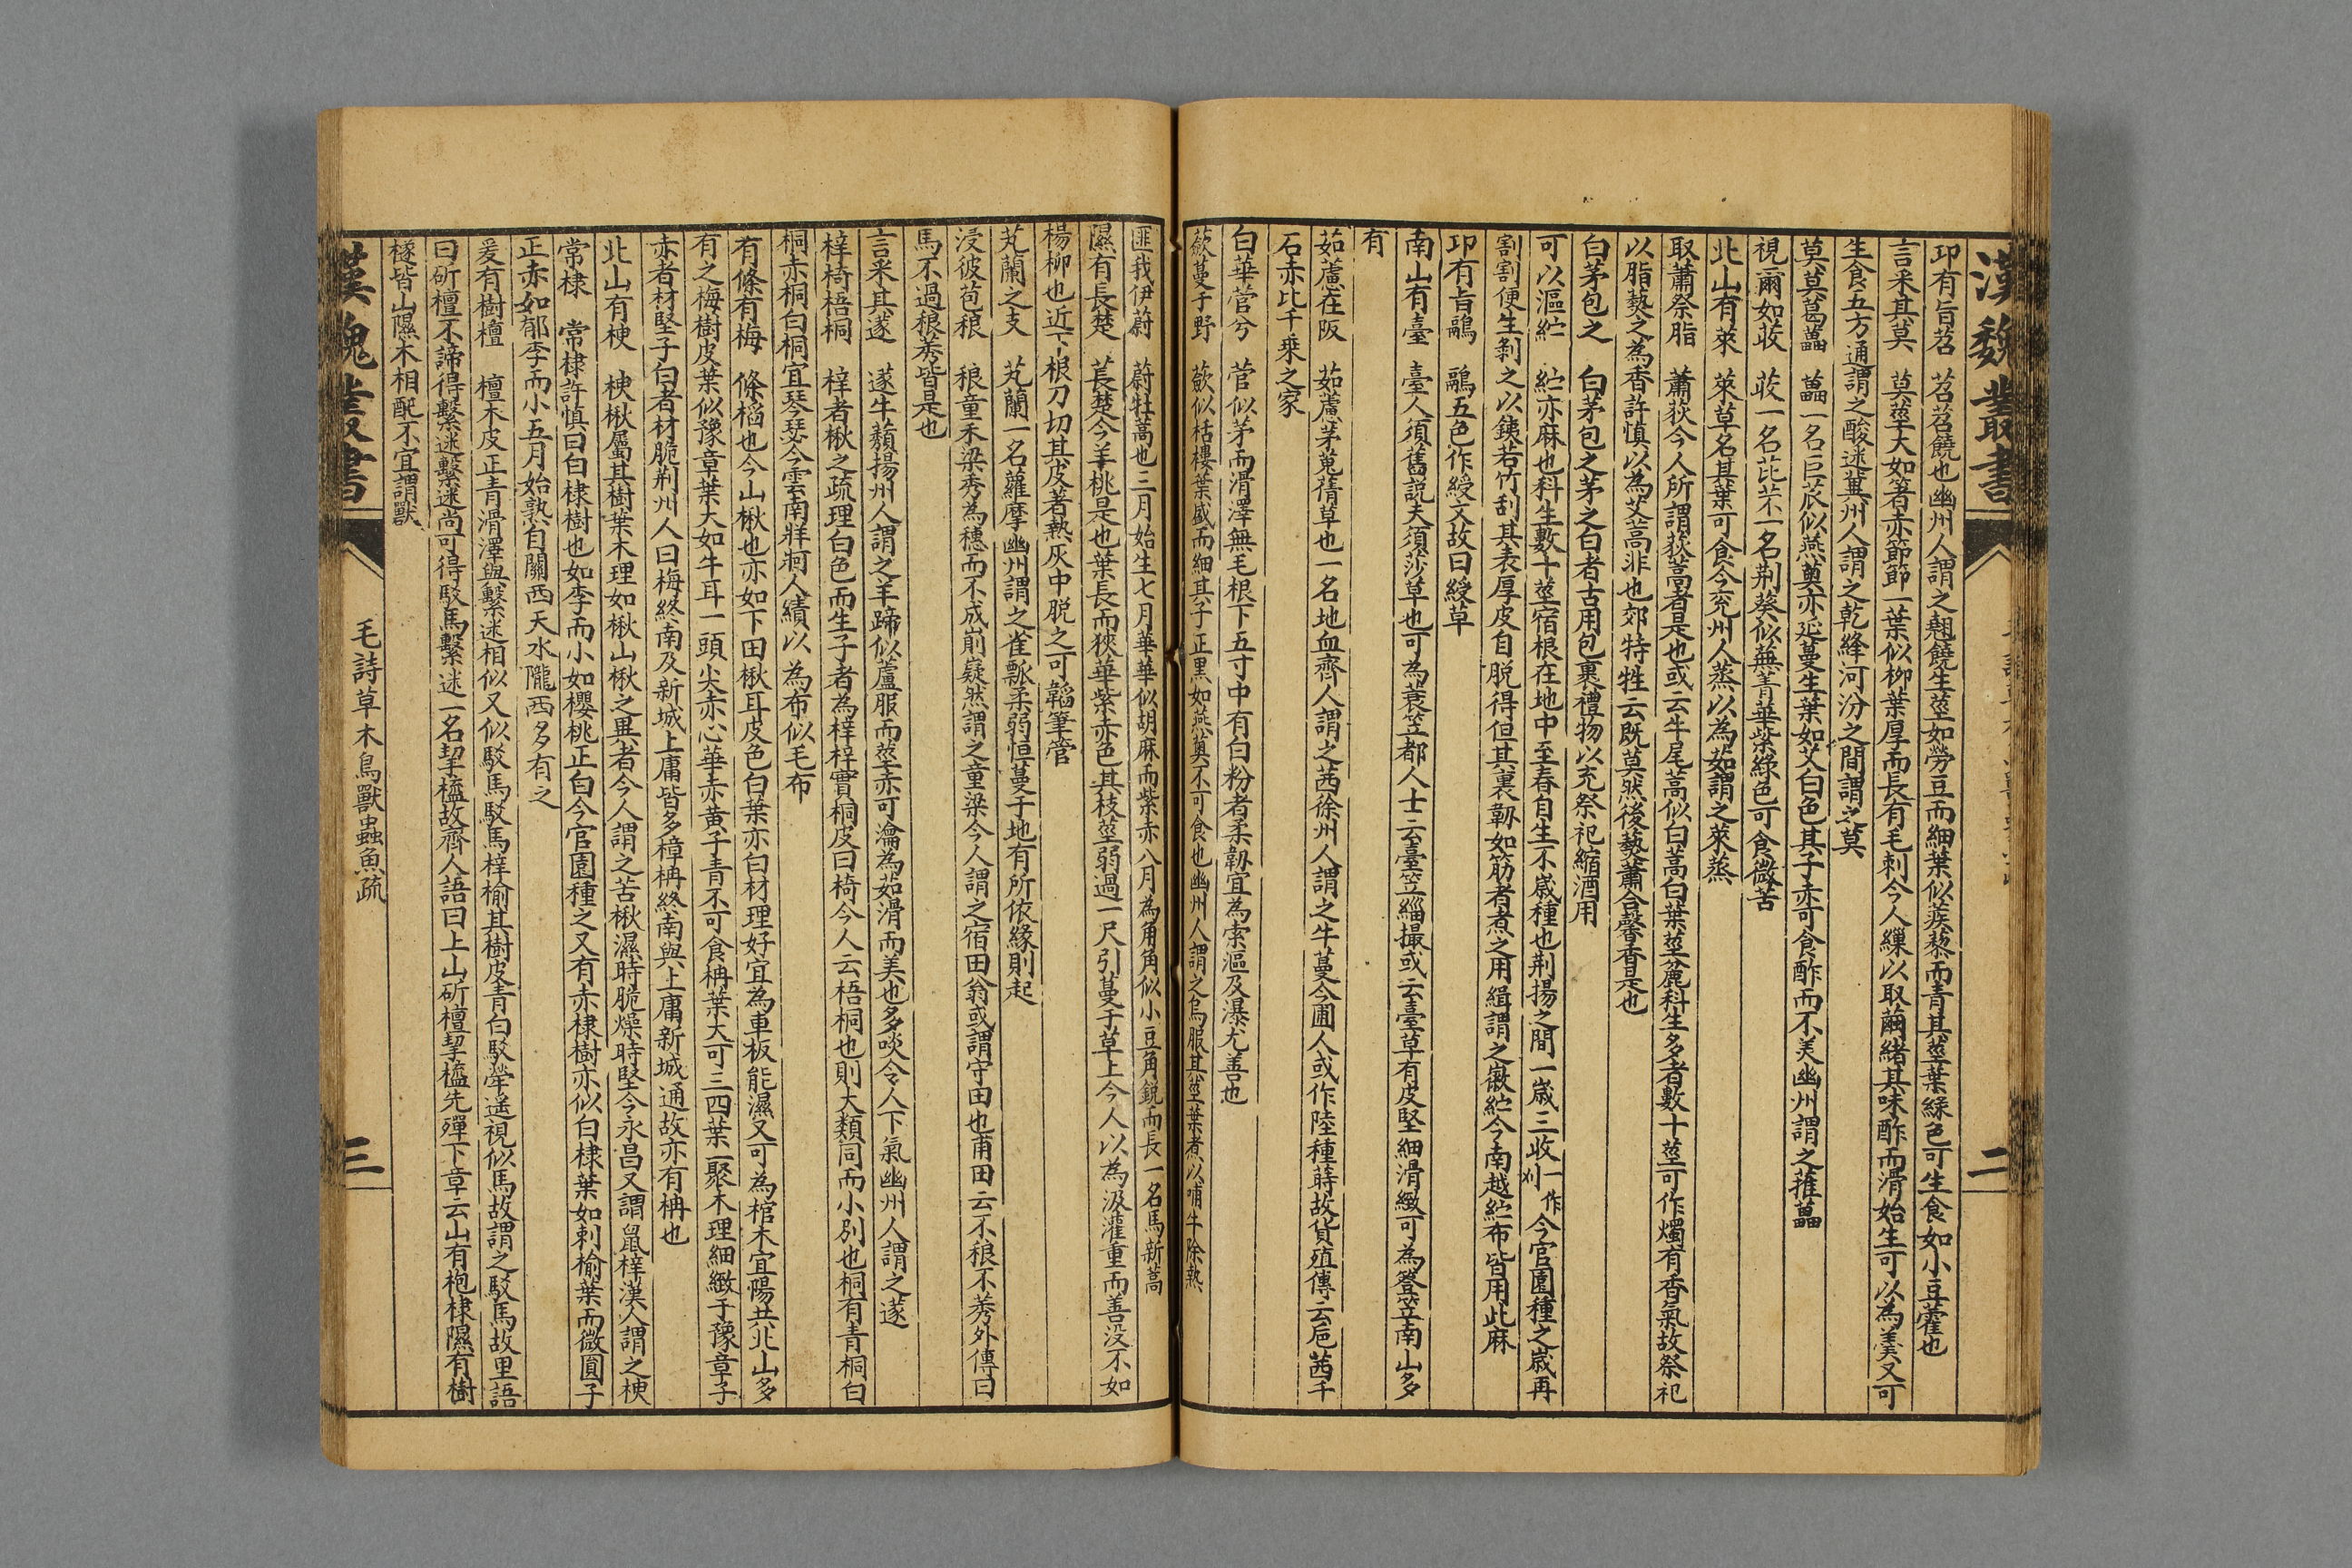 漢魏叢書
二
邛有旨苕　苕苕饒也幽州人謂之翹饒生莖如勞豆而細葉似蒺藜而青其莖葉綠色可生食如小豆藿也
言釆其莫　莫莖大如箸赤節節一葉似柳葉厚而長有毛刺今人繅以取繭緒其味酢而滑始生可以為羹又可
生食五方通謂之酸迷冀州人謂之乾絳河汾之間謂之莫
莫莫葛藟　藟一名巨苽似燕薁亦延蔓生葉如艾白色其子赤可食酢而不美幽州謂之蓷藟
視爾如荍　荍一名芘芣一名荆葵似蕪菁華紫綠色可食微苦
北山有萊　萊草名其葉可食今兖州人蒸以為茹謂之萊蒸
取蕭祭脂　蕭荻今人所謂荻蒿者是也或云牛尾蒿似白蒿白葉莖麄科生多者數十莖可作燭有香氣故祭祀
以脂爇之為香許慎以為艾蒿非也郊特牲云既莫然後爇蕭合馨香是也
白茅包之　白茅包之茅之白者古用包裹禮物以充祭祀縮酒用
可以漚紵　紵亦麻也科生數十莖宿根在地中至春自生不歲種也荆揚之間一歲三收一作刈今官園種之歲再
割割便生剝之以鐵若竹刮其表厚皮自脱得但其裏韌如筋者煮之用緝謂之徽紵今南越紵布皆用此麻
邛有旨鷊　鷊五色作綬文故曰綬草
南山有臺　臺人須舊説夫須莎草也可為蓑笠都人士云臺笠緇撮或云臺草有皮堅細滑緻可為簦笠南山多
有
茹藘在阪　茹藘茅蒐蒨草也一名地血齊人謂之茜徐州人謂之牛蔓今圃人或作陸種蒔故貨殖傳云巵茜千
石亦比千乗之家
白華菅兮　菅似茅而滑澤無毛根下五寸中有白粉者柔韌宜為索漚及瀑尤善也
蘞蔓于野　蘞似栝樓葉盛而細其子正黑如燕薁不可食也幽州人謂之烏服其莖葉煮以哺牛除熱
匪我伊蔚　蔚牡蒿也三月始生七月華華似胡麻而紫赤八月為角角似小豆角鋭而長一名馬新蒿
隰有萇楚　萇楚今羊桃是也葉長而狹華紫赤色其枝莖弱過一尺引蔓于草上今人以為汲灌重而善没不如
楊柳也近下根刀切其皮著熱灰中脱之可韜筆管
芄蘭之支　芄蘭一名蘿摩幽州謂之雀瓢柔弱恒蔓于地有所依緣則起
浸彼苞稂　稂童禾梁秀為穗而不成崱嶷然謂之童梁今人謂之宿田翁或謂守田也甫田云不稂不莠外傳曰
馬不過稂莠皆是也
言釆其蓫　蓫牛蘈揚州人謂之羊蹄似蘆服而莖赤可瀹為茹滑而美也多啖令人下氣幽州人謂之蓫
梓椅梧桐　梓者楸之疏理白色而生子者為梓梓實桐皮曰椅今人云梧桐也則大類同而小別也桐有青桐白
桐赤桐白桐宜琴瑟今雲南牂牁人績以為布似毛布
有條有梅　條槄也今山楸也亦如下田楸耳皮色白葉亦白材理好宜為車板能濕又可為棺木宜陽共北山多
有之梅樹皮葉似豫章葉大如牛耳一頭尖赤心華赤黄子青不可食柟葉大可三四葉一聚木理細緻于豫章子
赤者材堅子白者材脆荆州人曰梅終南及新城上庸皆多樟柟終南與上庸新城通故亦有柟也
北山有楰　楰楸屬其樹葉木理如楸山楸之異者今人謂之苦楸濕時脆燥時堅今永昌又謂鼠梓漢人謂之楰
常棣　常棣許慎曰白棣樹也如李而小如櫻桃正白今官園種之又有赤棣樹亦似白棣葉如刺榆葉而微圓子
正赤如郁李而小五月始熟自關西天水隴西多有之
爰有樹檀　檀木皮正青滑澤與繫迷相似又似駁馬駁馬梓榆其樹皮青白駁犖遥視似馬故謂之駁馬故里語
曰斫檀不諦得繫迷繫迷尚可得駁馬繫迷一名挈橀故齊人語曰上山斫檀挈橀先殫下章云山有苞棣隰有樹
檖皆山隰木相配不宜謂獸
漢魏叢書
毛詩草木鳥獸蟲魚疏
三